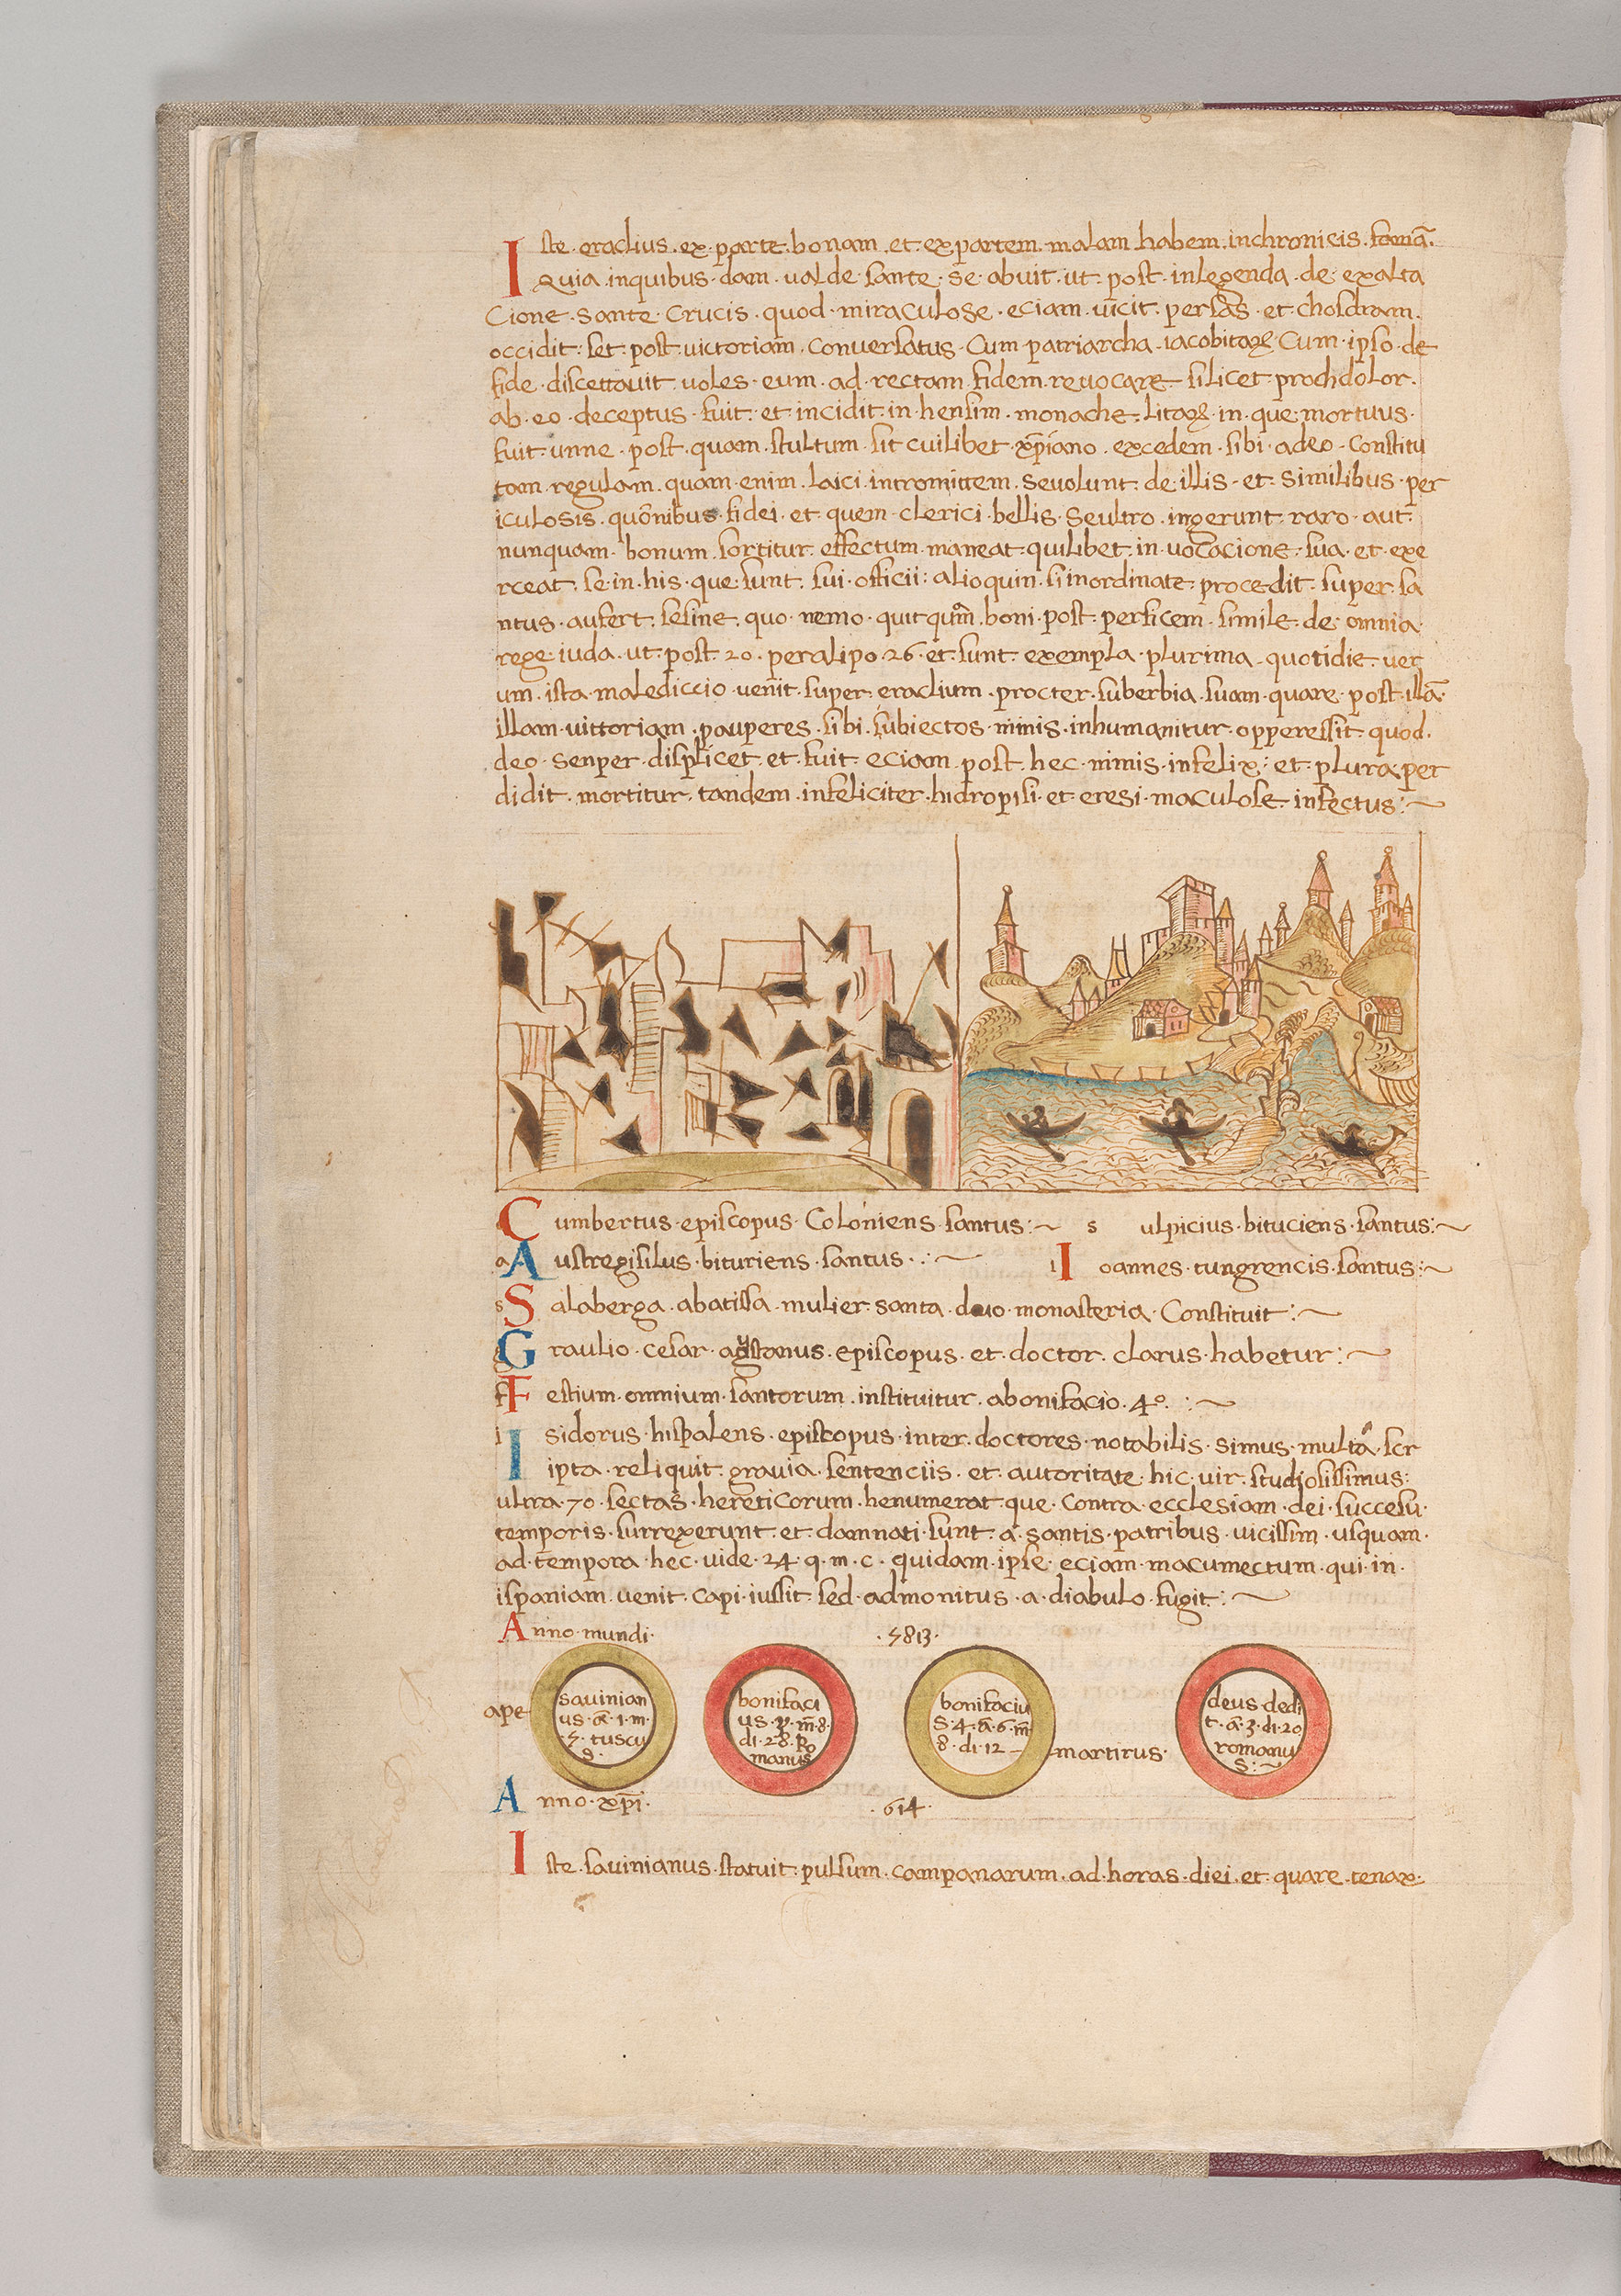 Iste · eraclius · ex · parte · bonam · et · ex partem · malam · habem · in chronicis · famā ·
Quia · in quibus · dam · ualde · sante · se · abuit · ut · post · in legenda · de · exalta
Cione · Sante · Crucis · quod · miraculose · eciam · uīcit · persas · et · chosdram ·
occidit · set · post · uictoriam · conuersatus · Cum · patriarcha · iacobitaꝝ · Cum · ipso · de
fide · discettauit · uoles · eum · ad · rectam · fidem · reuocare · silicet · proch dolor ·
ab · eo · deceptus · fuit · et · incidit · in · hensim · monache · litaꝝ · in · que · mortuus ·
fuit · unne · post · quam · stultum · sit cuilibet · xp̄iano · excedem · sibi · adeo · Constitu
tam · regulam · quam · enim · laici · intromittem · se uolunt · de · illis · et · similibus · per
iculosis · quōnibus · fidei · et · quem · clerici · bellis · se ultro · ingerunt · raro · aut ·
nunquam · bonum · sortitur · effectum · maneat · quilibet · in · uocacione · sua · et · exe
rceat · se · in · his · que · sunt · sui · officii : alioquin · si inordinate · procedit · super · sa
ntus · aufert · sesine · quo · nemo · quit · boni · post · perficem · simile · de · omnia
rege · iuda · ut · post · 20 · peralipo · 26 · et · sunt · exempla · plurima · quotidie · uer
um · ista · malediccio · uenit · super · eraclium · procter · suberbia · suam · quare · post · illā ·
illam · uittoriam · pauperes · sibi · subiectos · nimis · inhumanitur · opperessit · quod ·
deo · senper · displicet · et · fuit · eciam · post · hec · nimis · infelix : et · plura · per
didit · mortitur · tandem · infeliciter · hidropisi · et · eresi · maculose · infectus :~
Cumbertus · episcopus · Coloniens · santus :~ s ulpicius · bituciens · santus :~
Austregisilus · bituriens · santus · : ~ Ioannes · tungrencis · santus :~
Salaberga · abatissa · mulier · santa · duo · monasteria · Constituit :~
Graulio · cesar · agustanus · episcopus · et · doctor · clarus · habetur :~
Festium · omnium · santorum · instituitur · a bonifacio · 4º · :~
Isidorus · hispalens · episcopus · inter · doctores · notabilis · simus · multa · scr
ipta · reliquit · grauia · sentenciis · et · autoritate · hic · uir · studiosissimus :
ultra · 70 · sectas · hereticorum · henumerat · que · contra · ecclesiam · dei · succesu ·
temporis · surrexerunt · et · damnati · sunt · a · santis · patribus · uicissim · usquam ·
ad · tempora · hec · uide · 24 · q · m · c · quidam · ipse · eciam · macumectum · qui · in ·
ispaniam · uenit · capi · iussit · sed · admonitus · a · diabulo · fugit :~
Anno · mundi · · 5813 ·
ape
sauinian
us · ā · 1 · m ·
· 5 · tuscu
s ·
bonifaci
us · p · m̄ · 8 ·
di · 28 · Ro
manus
bonifaciu
s · 4 · ā · 6 · m̄
8 · di · 12 –
martirus ·
deus · dedi
t · ā · 3 · di · 20
romanu
s :~
Anno · xp̄i · · 614 ·
Iste · sauinianus · statuit · pulsum · campanarum · ad · horas · diei · et · quare · tenax ·